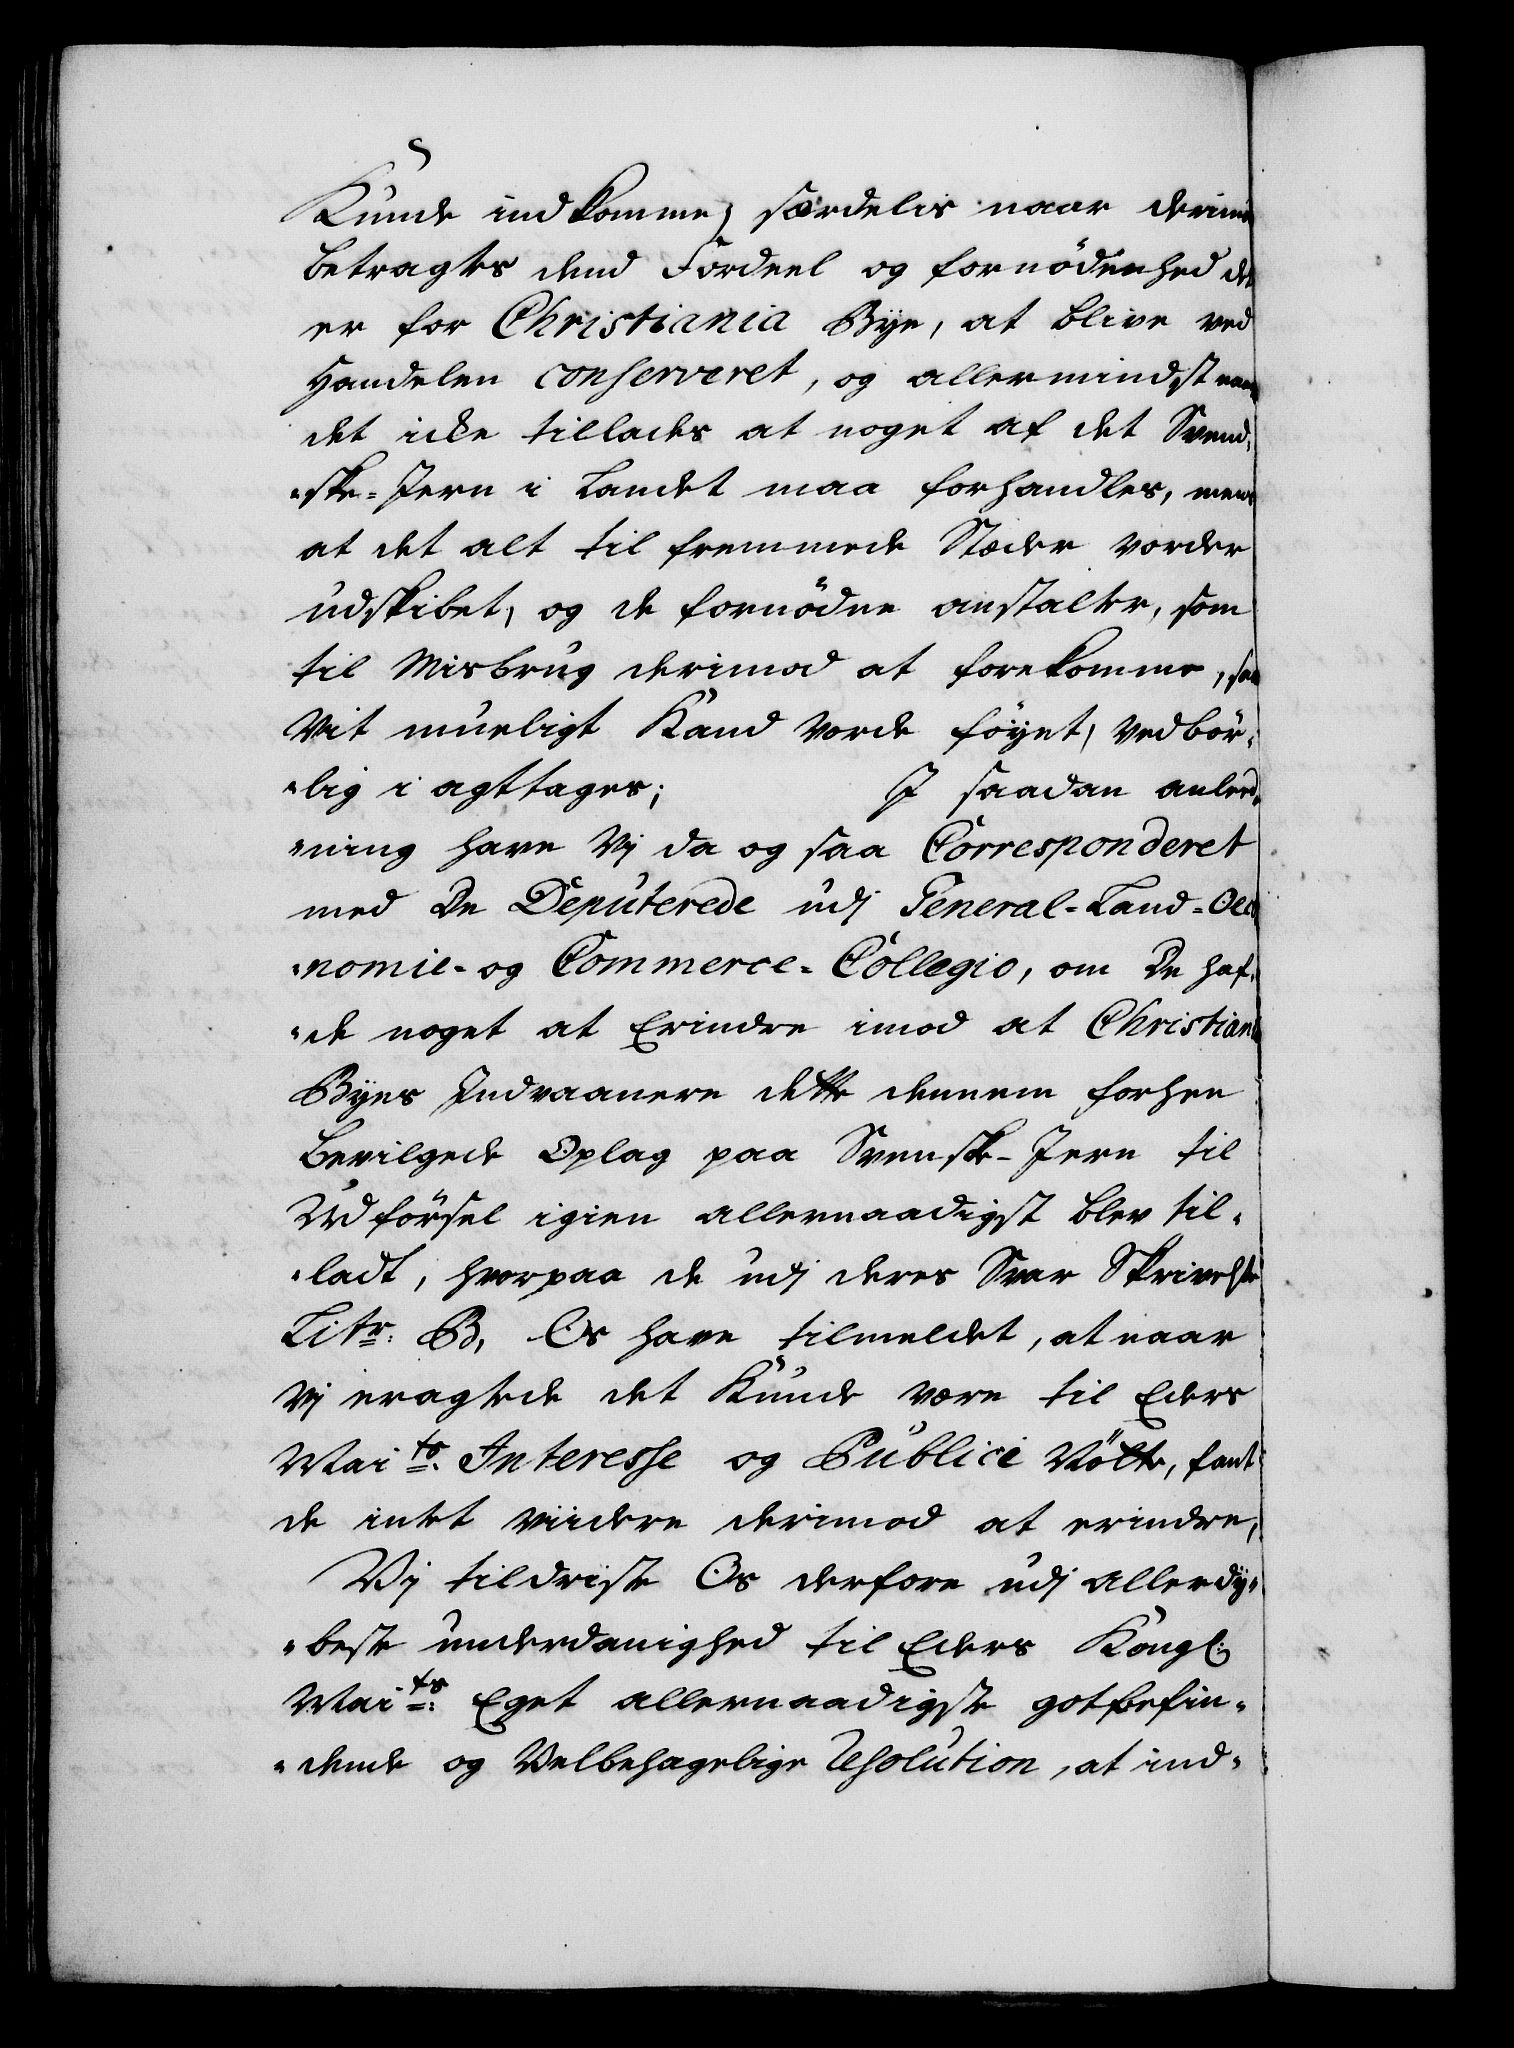 Kunde indkomme, særdelis naar derimod
betragtes dend Fordeel og fornödenhed det
er for Christiania Bÿe, at blive ved
Handelen conserveret, og allermindst naar
det icke tillades at noget af det Svend-
-ske-Jern i Landet maa forhandles, mens
at det alt til fremmede Stæder vorder
udskibet, og de fornödne anstalter, som
til Misbrug derimod at forekomme, saa
Vit mueligt Kand vorde föyet, vedbör-
-lig i agttages; J saadan anled-
-ning have Vj da og saa Corresponderet
med De Deputerede udj General-Land-Oeco
-nomie- og Commerce-Collegio, om De haf-
-de noget at Erindre imod at Christiania
Bÿes Indvaanere dette dennem forhen
bevilgede Oplag paa Svensk-Jern til
Udförsel igien allernaadigst blev til-
-ladt, hvorpaa de udj deres Svar Skrivelse
Litr: B, Os have tilmeldet, at naar
Vj eragtede det Kunde være til Eders
Maits: Interesse og Publici Nötte, fant
de intet viidere derimod at erindre,
Vj tildriste Os derfore udj allerdÿ-
-beste underdanighed til Eders Kongl:
Maits: Eget allernaadigste gotbefin-
-dende og Velbehagelige Resolution, at ind-